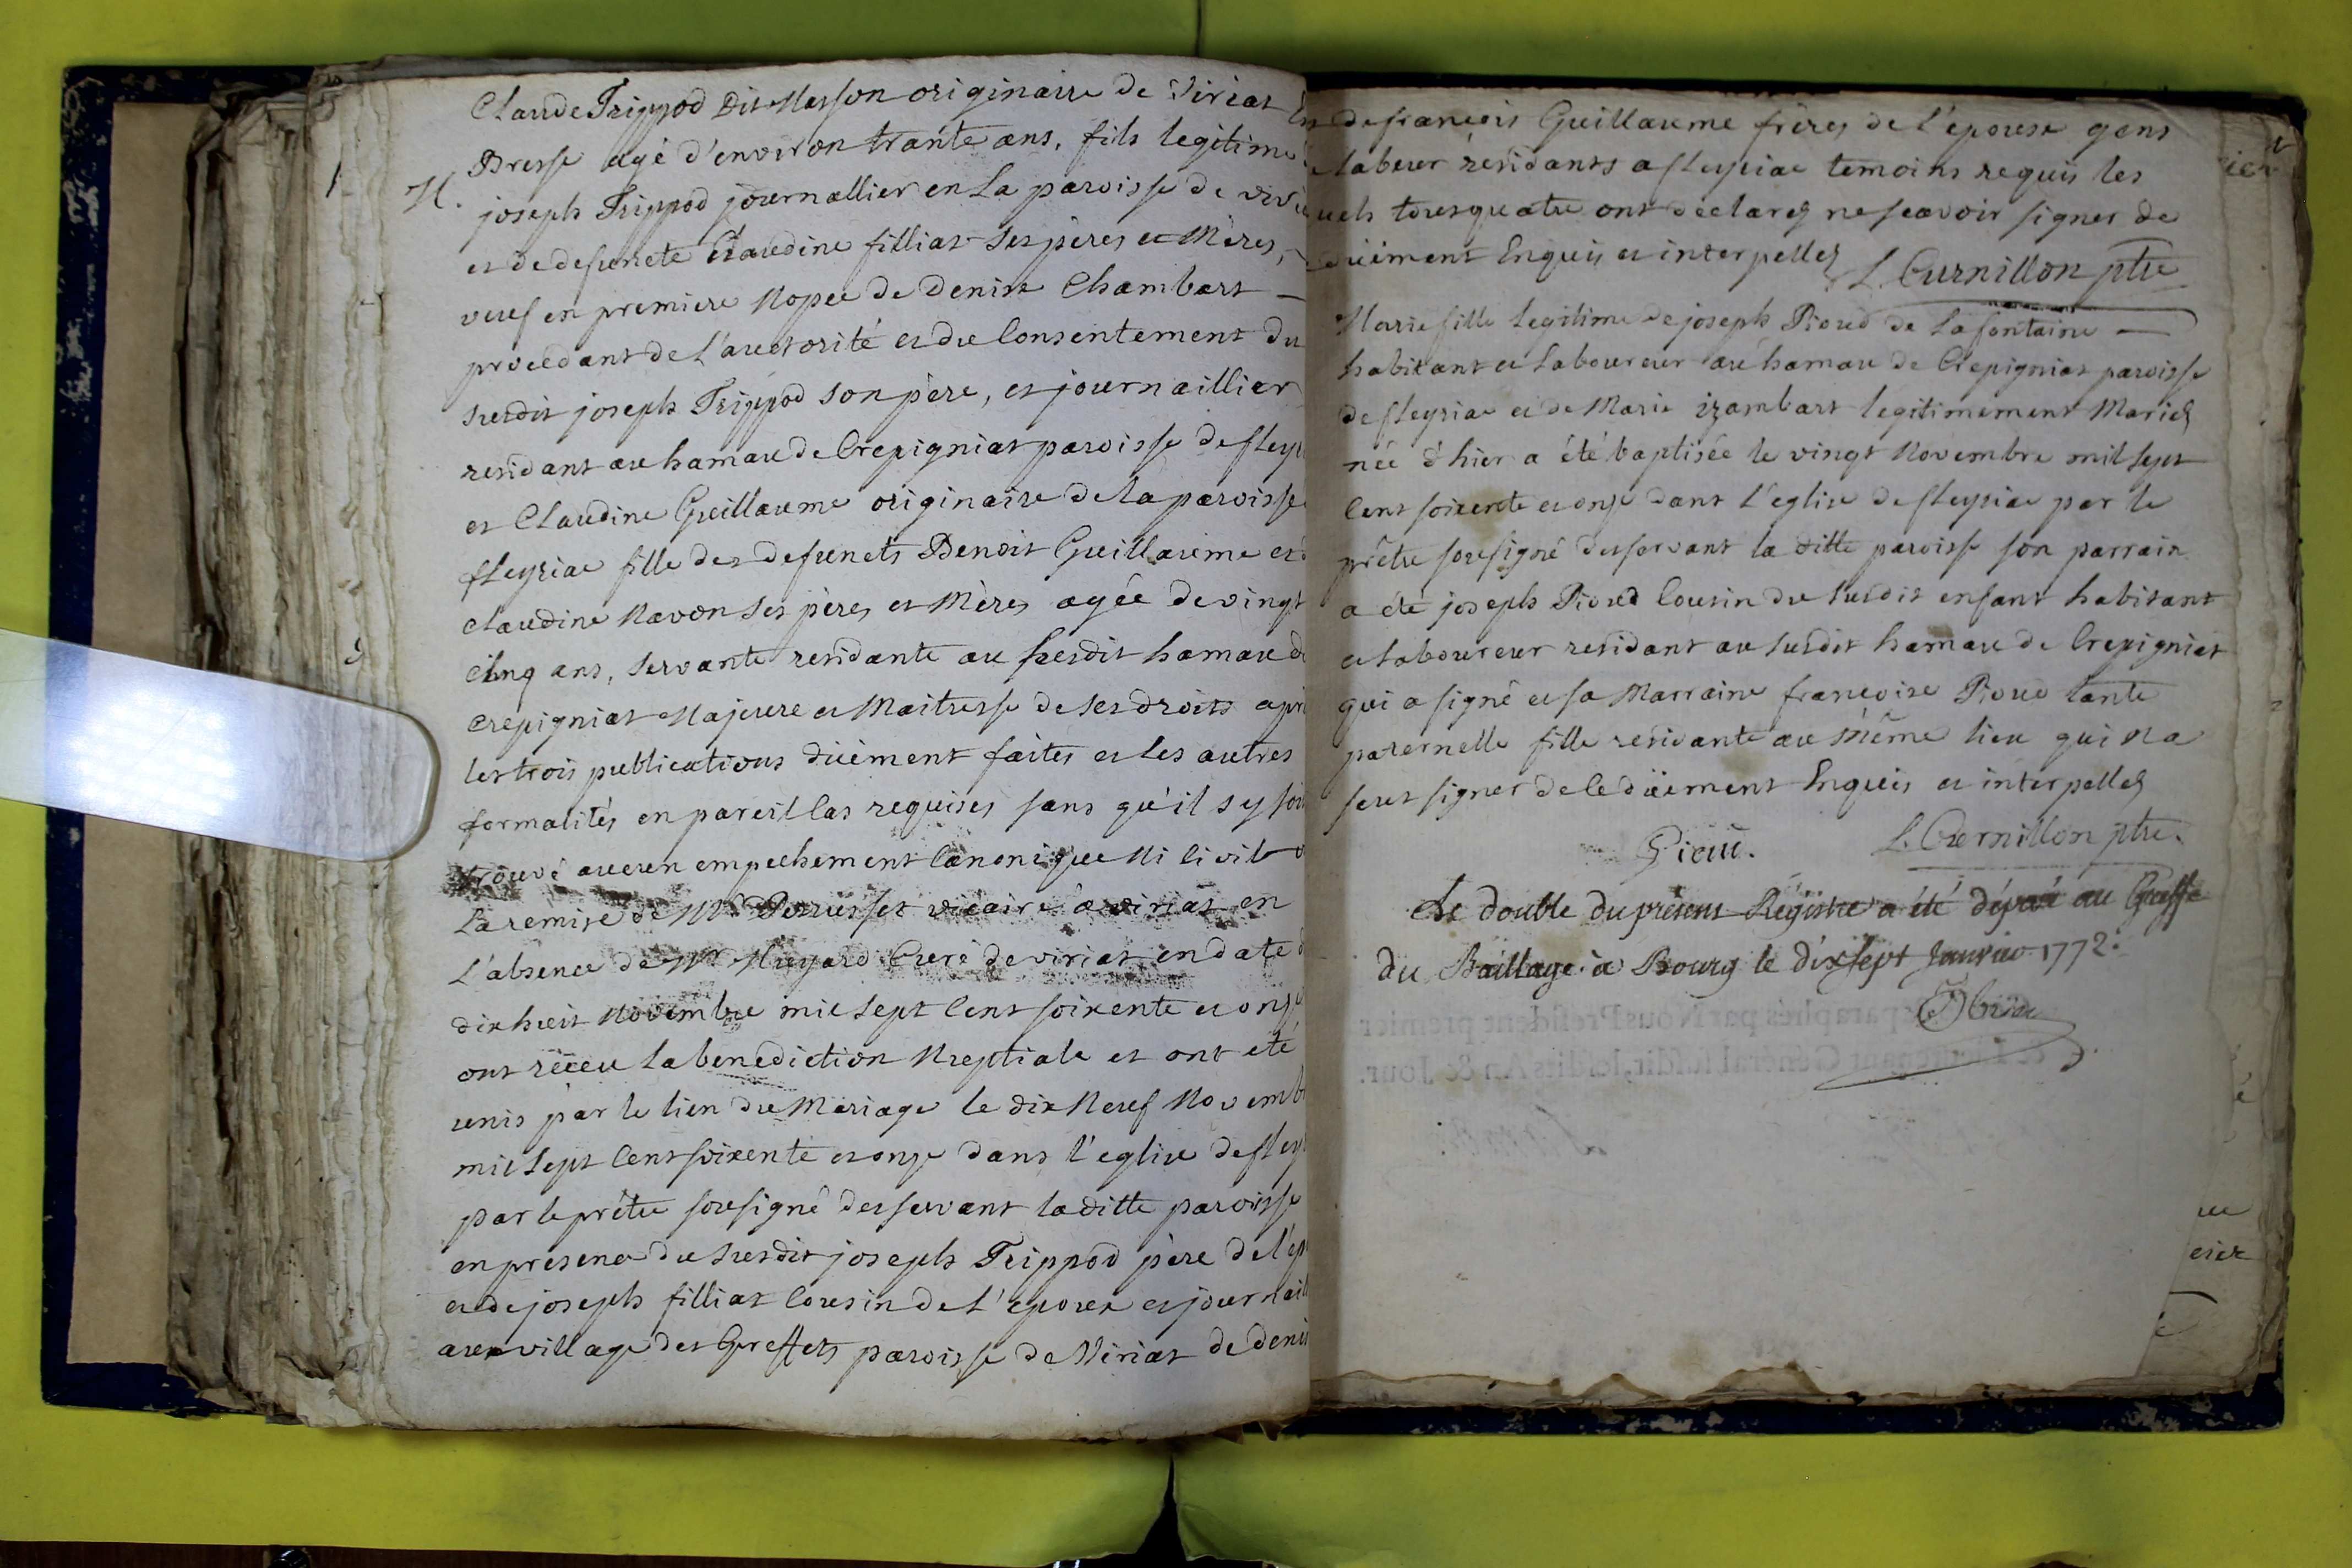 Claude Trippod Dit Masson originaire de Viriat En
Bresse agé d'environ trante ans, fils legitime
M. joseph Trippod journallier en La paroisse de viria
et de defuncte Claudine filliat ses pères et Mères,
veuf en premiere Nopce de Denise Chambart —
procedant de l'auctorité et du Consentement du
susdit joseph Trippod son père, et journaillier
residant au hamau de Crepigniat paroisse de fleyr
et Claudine Guillaume originaire de la paroisse
fleyriac fille des defuncts Benoit Guillaume et d
claudine Navon ses pères et Mères agée de vingt
cinq ans, servante residante au susdit hamau de
crepigniat Majeure et Maitresse de ses droits apr
les trois publications düement faites et les autres
formalités en pareil Cas requises sans qu'il s'y soit
trouvé aucun empechement Canonique Ni Civil v
La remise de Mr Perrusset vicaire a viriat en
L'absence de Mr Curé de viriat en date d
dix huit Novembre mil sept Cent soixente et onze
ont reçeu La benediction Nuptiale et ont eté
unis par le lien du Mariage le dix Neuf Novemb
mil sept Cent soixente et onze dans l'eglise de fley
par le prêtre sousigné desservant la ditte paroisse
en presence du susdit joseph Trippod père de l'ep
et de joseph filliat Cousin de L'epoux et journail
au village des Greffets paroisse de Viriat de deni
de françois Guillaume frères de l'epouse gens
labeur résidants a fleyriac temoins requis les
uels tous quatre ont déclarés ne sçavoir signer de
düement Enquis et interpellés L. Curnillon ptre
Marie fille legitime de joseph Pioud de Lafontaine —
habitant et Laboureur au hamau de Crepigniat paroisse
de fleyriac et de Marie izambart legitimement Mariés
née d'hier a été baptisée le vingt Novembre mil sept
Cent soixente et onze dans l'eglise de fleyriac par le
prêtre sousigné desservant la ditte paroisse son parrain
a été joseph Pioud Cousin du susdit enfant habitant
et laboureur residant au susdit hamau de Crepigniat
qui a signé et sa Marraine françoise Pioud tante
paternelle fille residante au même lieu qui n'a
sceut signer de Ce düement Enquis et interpellés
Pioud. L. Curnillon ptre.
Le double du présent Régistre a été déposé au Greffe
du Baillage à Bourg le dixsept Janvier 1772.